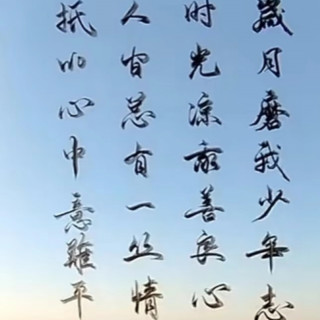 歲月磨我少年志
时光凉我善良心
人间总有一丝情
抵叫心中意難平